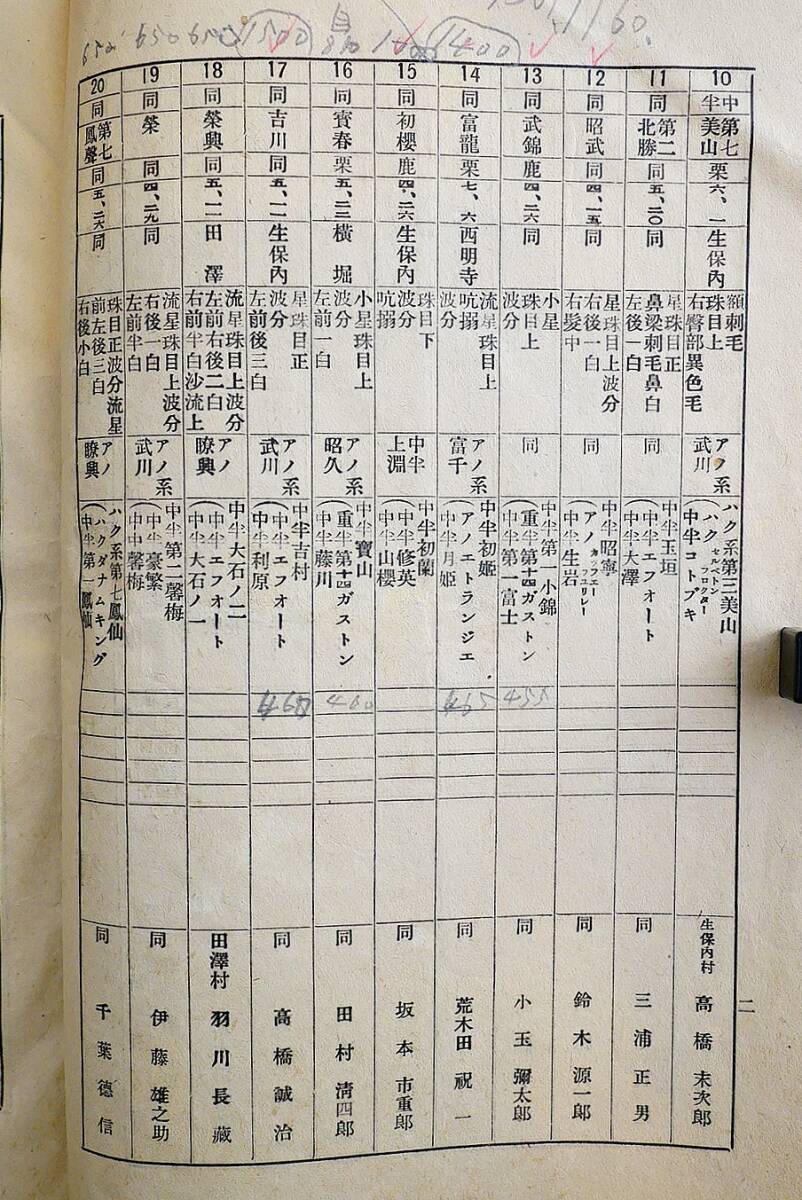 650 650 650 1500 1400 1160.
二
10
中半
第七
美山
栗
六、一
生保內
額刺毛
珠目上
右臀部異色毛
アノ系
武川
ハク系第三美山
ハクセルベトンフロクター
中半コトブキ
生保內村 高橋末次郎
11
同
第二
北勝
同
五、二〇
同
星珠目正
鼻梁刺毛鼻白
左後一白
同
中半玉垣
中半エフォート
中半大澤
同 三浦正男
12
同
昭武
同
四、一五
同
星珠目上波分
右後一白
右髮中
同
中半昭寧
アノカッフェーフユリレー
中半生岩
同 鈴木源一郎
13
同
武錦
鹿
四、二六
同
小星
珠目上
波分
同
中半第一小錦
重半第十四ガストン
中半第一富士
455
同 小玉彌太郎
14
同
富龍
栗
七、六
西明寺
流星珠目上
吭搦
波分
アノ系
富千
中半初姬
アノエトランジエ
中半月姬
465
同 荒木田祝一
15
同
初櫻
鹿
四、二六
生保內
珠目下
波分
吭搦
中半
上淵
中半初蘭
中半修英
中半山櫻
同 坂本市重郎
16
同
寶春
栗
五、二三
橫堀
小星珠目上
波分
左前一白
アノ系
昭久
中半寶山
重半第十四ガストン
中半藤川
460
同 田村淸四郎
17
同
吉川
同
五、一一
生保內
星珠目正
波分
左前後三白
アノ系
武川
中半吉村
中半エフォート
中半利原
460
同 高橋誠治
18
同
榮興
同
五、一一
田澤
流星珠目上波分
左前右後二白
右前半白沙流上
アノ
瞭興
中半大石ノ二
中半エフォート
中半大石ノ一
田澤村 羽川長藏
19
同
榮
同
四、二九
同
流星珠目上波分
右後一白
左前半白
アノ系
武川
中半第二馨梅
中半豪繁
中中馨梅
同 伊藤雄之助
20
同
第七
鳳聲
同
五、二六
同
珠目正波分流星
前左後三白
右後小白
アノ
瞭興
ハク系第七鳳仙
ハクダナムキング
中半第一鳳仙
同 千葉德信